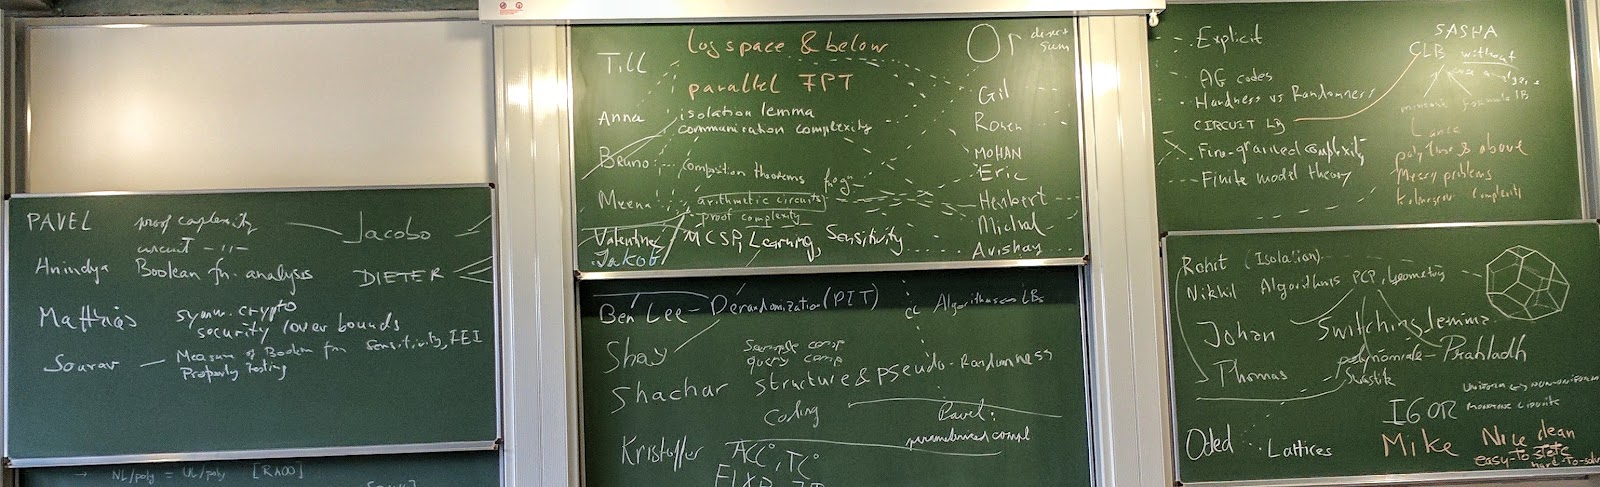 PAVEL proof complexity Jacobo
circuit -"-
Anindya Boolean fn. analysis DIETER
Matthias symm. crypto
security lower bounds
Sourav Measure of Boolean fn Sensitivity, FEI
Property Testing
→ NL/poly = UL/poly [RA00]
Till logspace & below Or direct sum
parallel FPT Gil
Anna isolation lemma Ronen
communication complexity
Bruno composition theorems MOHAN
Eric
Meena arithmetic circuits Heribert
proof complexity Michal
Valentine MCSP, Learning, Sensitivity Avishay
Jakob
Ben Lee - Derandomization (PIT) Algorithms LBs
Shay Sample comp
query comp
Shachar structure & pseudo-Randomness
Coding Pavel:
parameterized compl
Kristoffer ACC⁰, TC⁰
Explicit SASHA
AG codes CLB without
Hardness vs Randomness formula LB
CIRCUIT LB Lance
Fine-grained complexity poly time & above
Finite model theory Messy problems
Kolmogorov Complexity
Rohit (Isolation)
Nikhil Algorithms PCP, Geometry
Johan Switching lemma
Thomas polynomials - Prahladh
Swastik
IGOR Uniform ↔ nonuniform
monotone circuits
Oded Lattices Mike Nice clean
easy-to-state
hard-to-solve